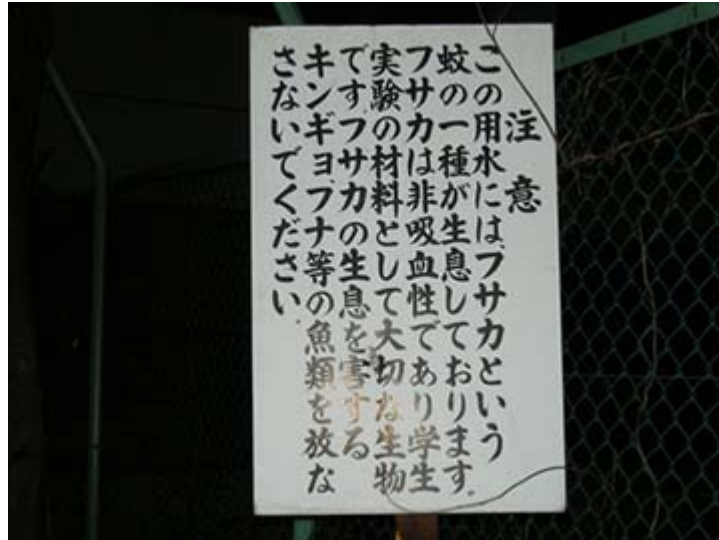 注意
この用水には、フサカという
蚊の一種が生息しております。
フサカは非吸血性であり学生
実験の材料として大切な生物
です。フサカの生息を害する
キンギョ、フナ等の魚類を放な
さないでください。